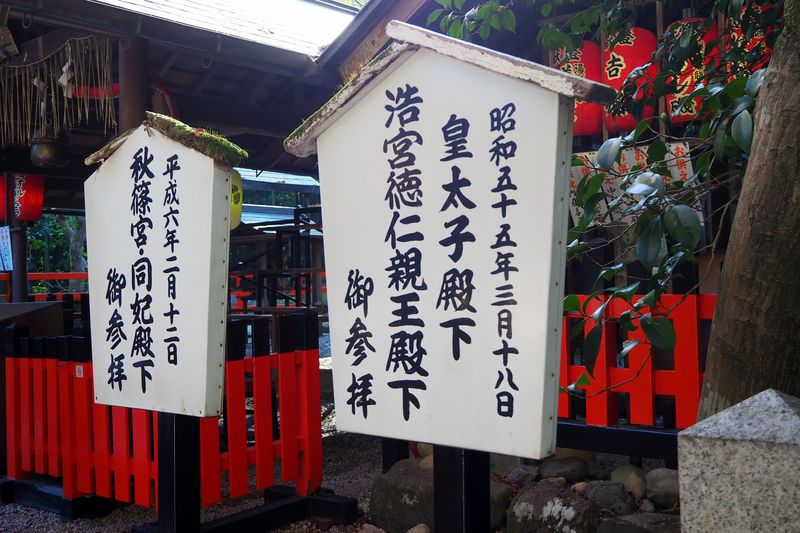 昭和五十五年三月十八日
皇太子殿下
浩宮徳仁親王殿下
御参拝
平成六年二月十二日
秋篠宮・同妃殿下
御参拝